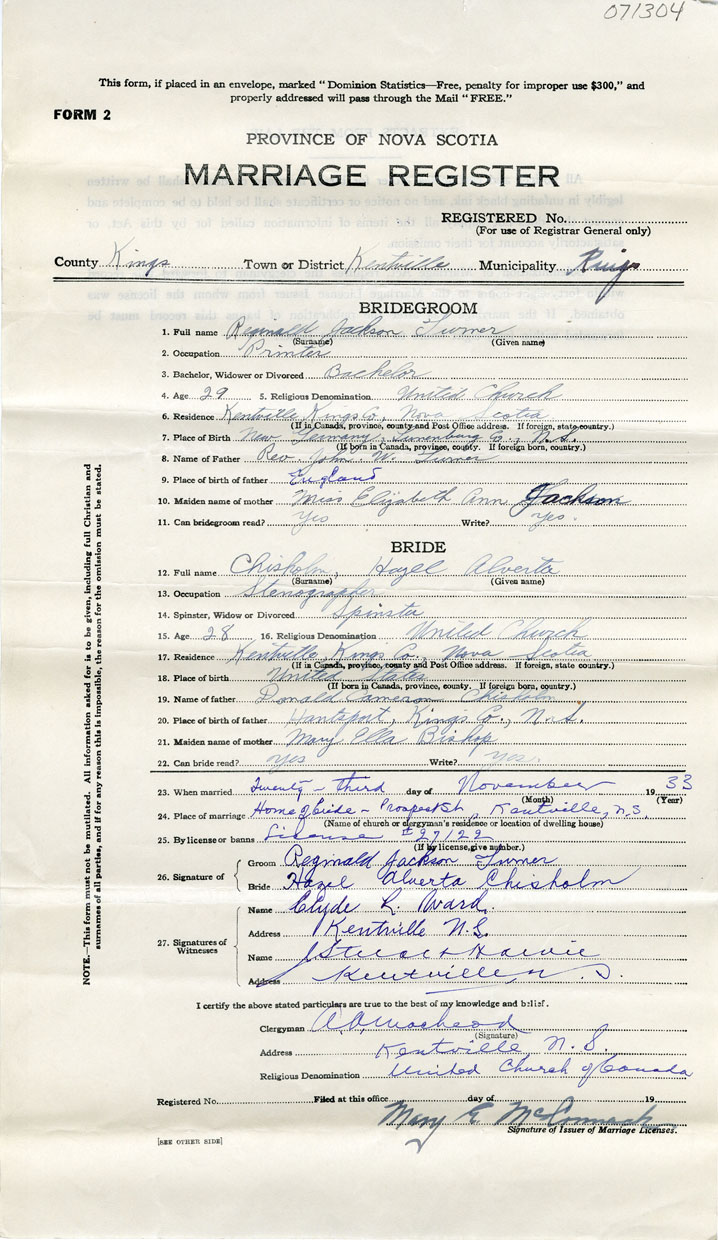 071304
This form, if placed in an envelope, marked "Dominion Statistics—Free, penalty for improper use $300," and
properly addressed will pass through the Mail "FREE."
FORM 2
PROVINCE OF NOVA SCOTIA
MARRIAGE REGISTER
REGISTERED No.
(For use of Registrar General only)
County Kings Town or District Kentville Municipality Kings
BRIDEGROOM
1. Full name Reginald Jackson Turner
(Surname) (Given name)
2. Occupation Printer
3. Bachelor, Widower or Divorced Bachelor
4. Age 29 5. Religious Denomination United Church
6. Residence Kentville Kings Co, Nova Scotia
(If in Canada, province, county and Post Office address. If foreign, state country.)
7. Place of Birth New Germany, Lunenburg Co., N.S.
(If born in Canada, province, county. If foreign born, country.)
8. Name of Father Rev. John W. Turner
9. Place of birth of father England
10. Maiden name of mother Miss Elizabeth Ann Jackson
11. Can bridegroom read? Yes Write? Yes.
BRIDE
12. Full name Chisholm, Hazel Alverta
(Surname) (Given name)
13. Occupation Stenographer
14. Spinster, Widow or Divorced Spinster
15. Age 28 16. Religious Denomination United Church
17. Residence Kentville, Kings Co., Nova Scotia
(If in Canada, province, county and Post Office address. If foreign, state country.)
18. Place of birth United States
(If born in Canada, province, county. If foreign born, country.)
19. Name of father Donald Cameron Chisholm
20. Place of birth of father Hantsport, Kings Co., N.S.
21. Maiden name of mother Mary Ella Bishop
22. Can bride read? yes Write? yes.
23. When married Twenty-third day of November 1933
(Month) (Year)
24. Place of marriage Home of Bride - Prospect St, Kentville, N.S.
(Name of church or clergyman's residence or location of dwelling house)
25. By license or banns License #27122
(If by license, give number.)
26. Signature of
Groom Reginald Jackson Turner
Bride Hazel Alverta Chisholm
27. Signatures of Witnesses
Name Clyde L. Ward.
Address Kentville N.S.
Name Harvie
Address Kentville N.S.
I certify the above stated particulars are true to the best of my knowledge and belief.
Clergyman
(Signature)
Address Kentville, N.S.
Religious Denomination United Church of Canada
Registered No. Filed at this office day of 19
Mary E McCormack
Signature of Issuer of Marriage Licenses.
[SEE OTHER SIDE]
NOTE.—This form must not be mutilated. All information asked for is to be given, including full Christian and
surnames of all parties, and if for any reason this is impossible, the reason for the omission must be stated.